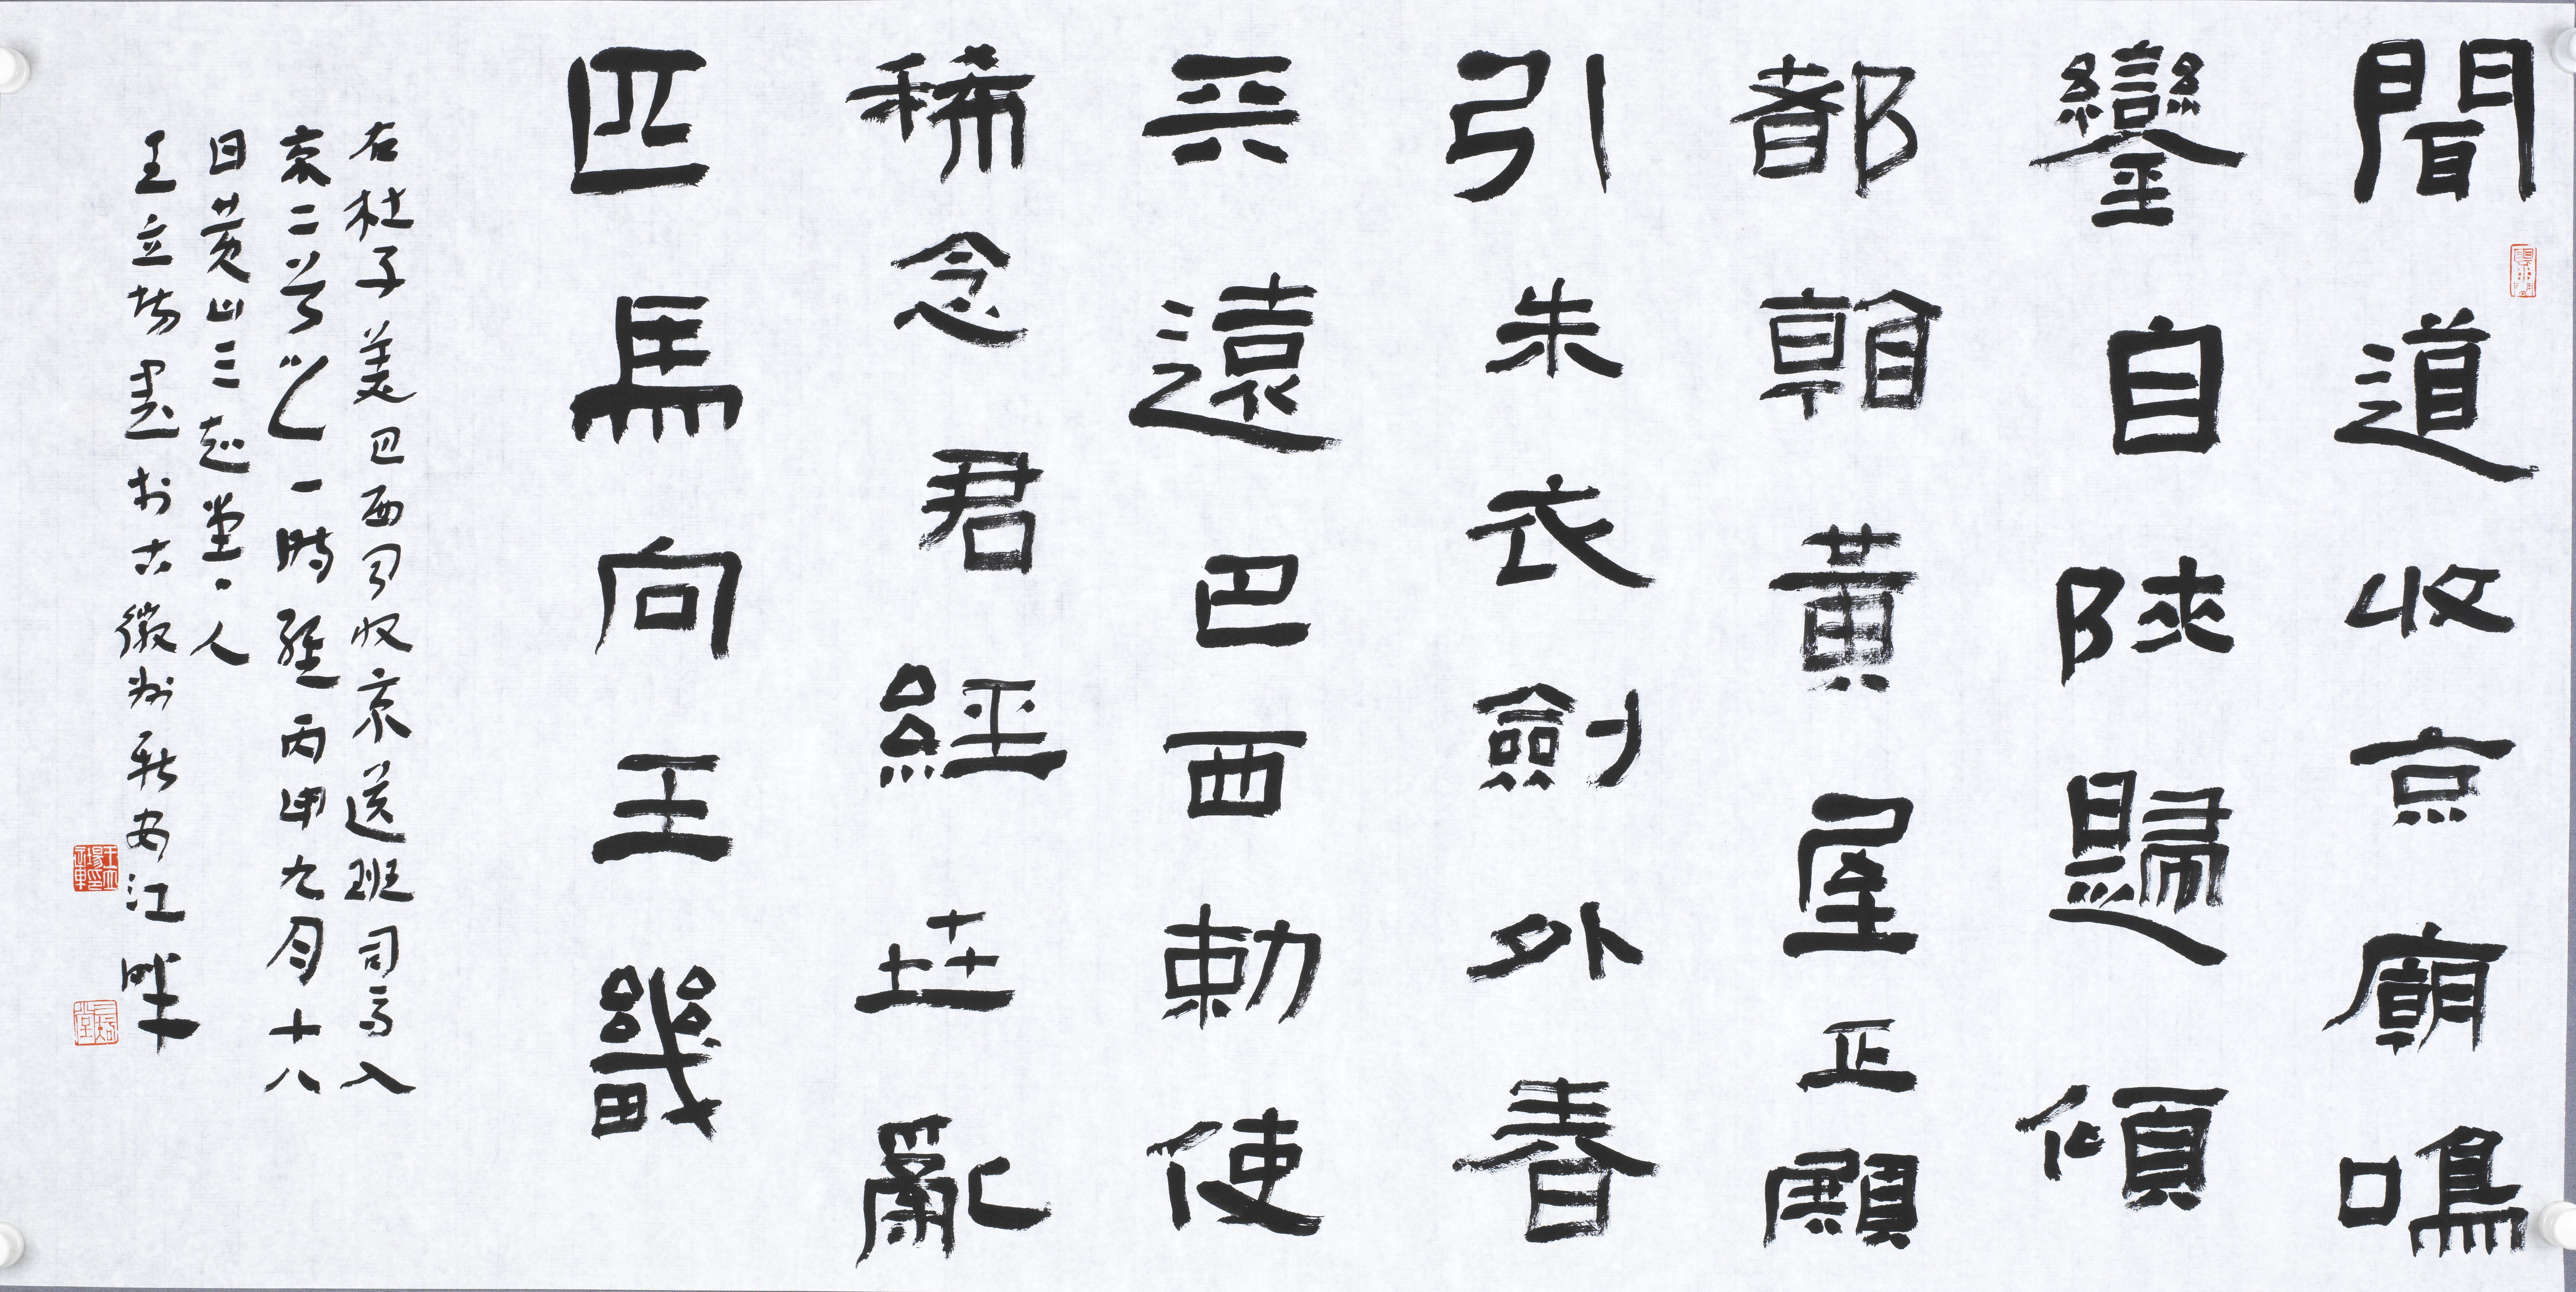 聞道收京廟鳴
鑾自陝歸傾
都黃屋正
引朱衣劍外春
兲遠巴西勅使
稀念君經世亂
匹馬向王畿
右杜子美巴西聞收京送班司馬入
京二首之一時經丙申九月十八
日黃山三堂主人
王立場書於古徽州新安江畔